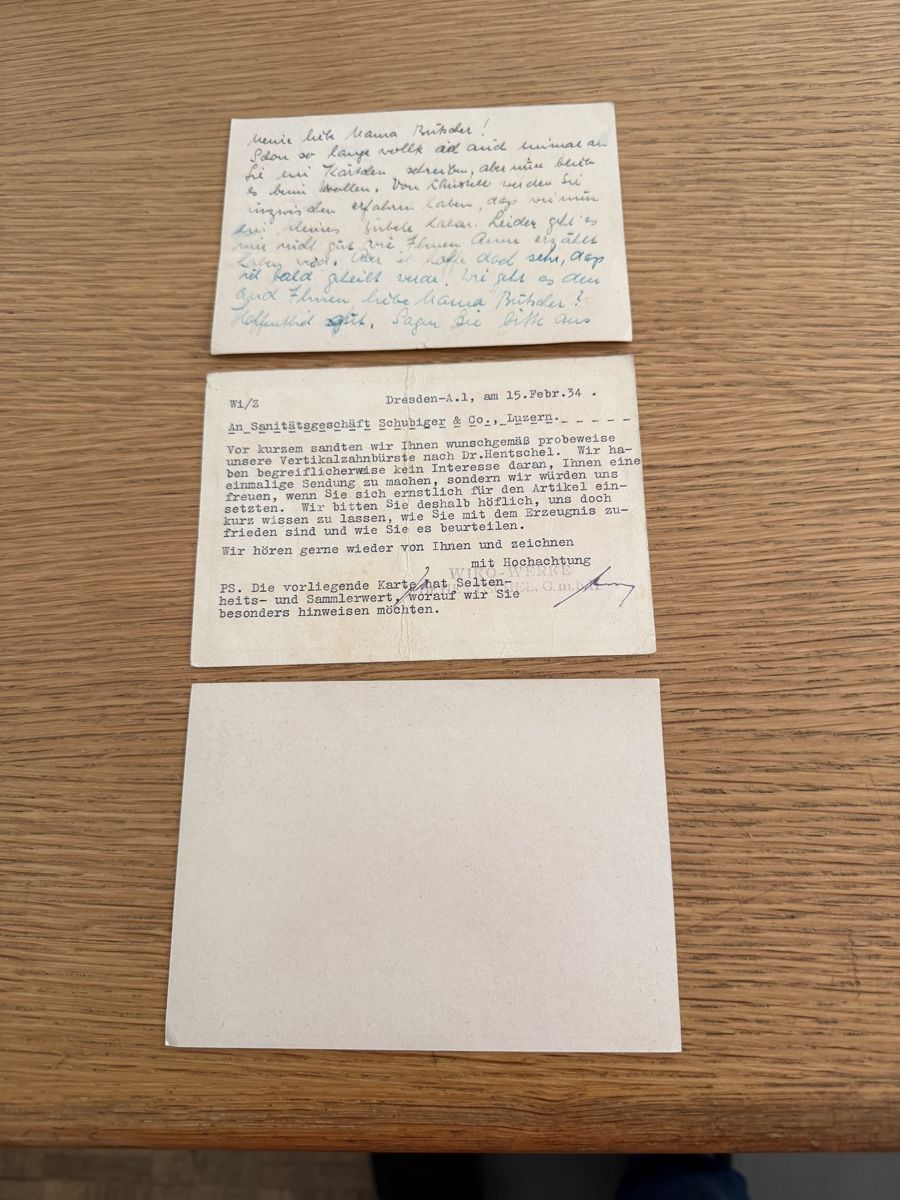 Meine liebe Mama Bütscher!
Schon so lange wollte ich auch einmal an
Sie ein Kärtchen schreiben, aber nun blieb
es beim wollen. Von werden Sie
inzwischen erfahren haben, dass wir nun
ein kleines haben. Leider geht es
mir nicht gut wie Ihnen Anni erzählt
haben wird. Aber ich hoffe doch sehr, dass
ich bald geheilt werde! Wie geht es denn
auch Ihnen, liebe Mama Bütscher?
Hoffentlich gut. Sagen Sie bitte aus
Wi/Z
Dresden-A.1, am 15.Febr.34 .
An Sanitätsgeschäft Schubiger & Co., Luzern.
Vor kurzem sandten wir Ihnen wunschgemäß probeweise
unsere Vertikalzahnbürste nach Dr.Hentschel. Wir ha-
ben begreiflicherweise kein Interesse daran, Ihnen eine
einmalige Sendung zu machen, sondern wir würden uns
freuen, wenn Sie sich ernstlich für den Artikel ein-
setzten. Wir bitten Sie deshalb höflich, uns doch
kurz wissen zu lassen, wie Sie mit dem Erzeugnis zu-
frieden sind und wie Sie es beurteilen.
Wir hören gerne wieder von Ihnen und zeichnen
mit Hochachtung
WIKO-WERKE
G.m.b.H.
PS. Die vorliegende Karte hat Selten-
heits- und Sammlerwert, worauf wir Sie
besonders hinweisen möchten.